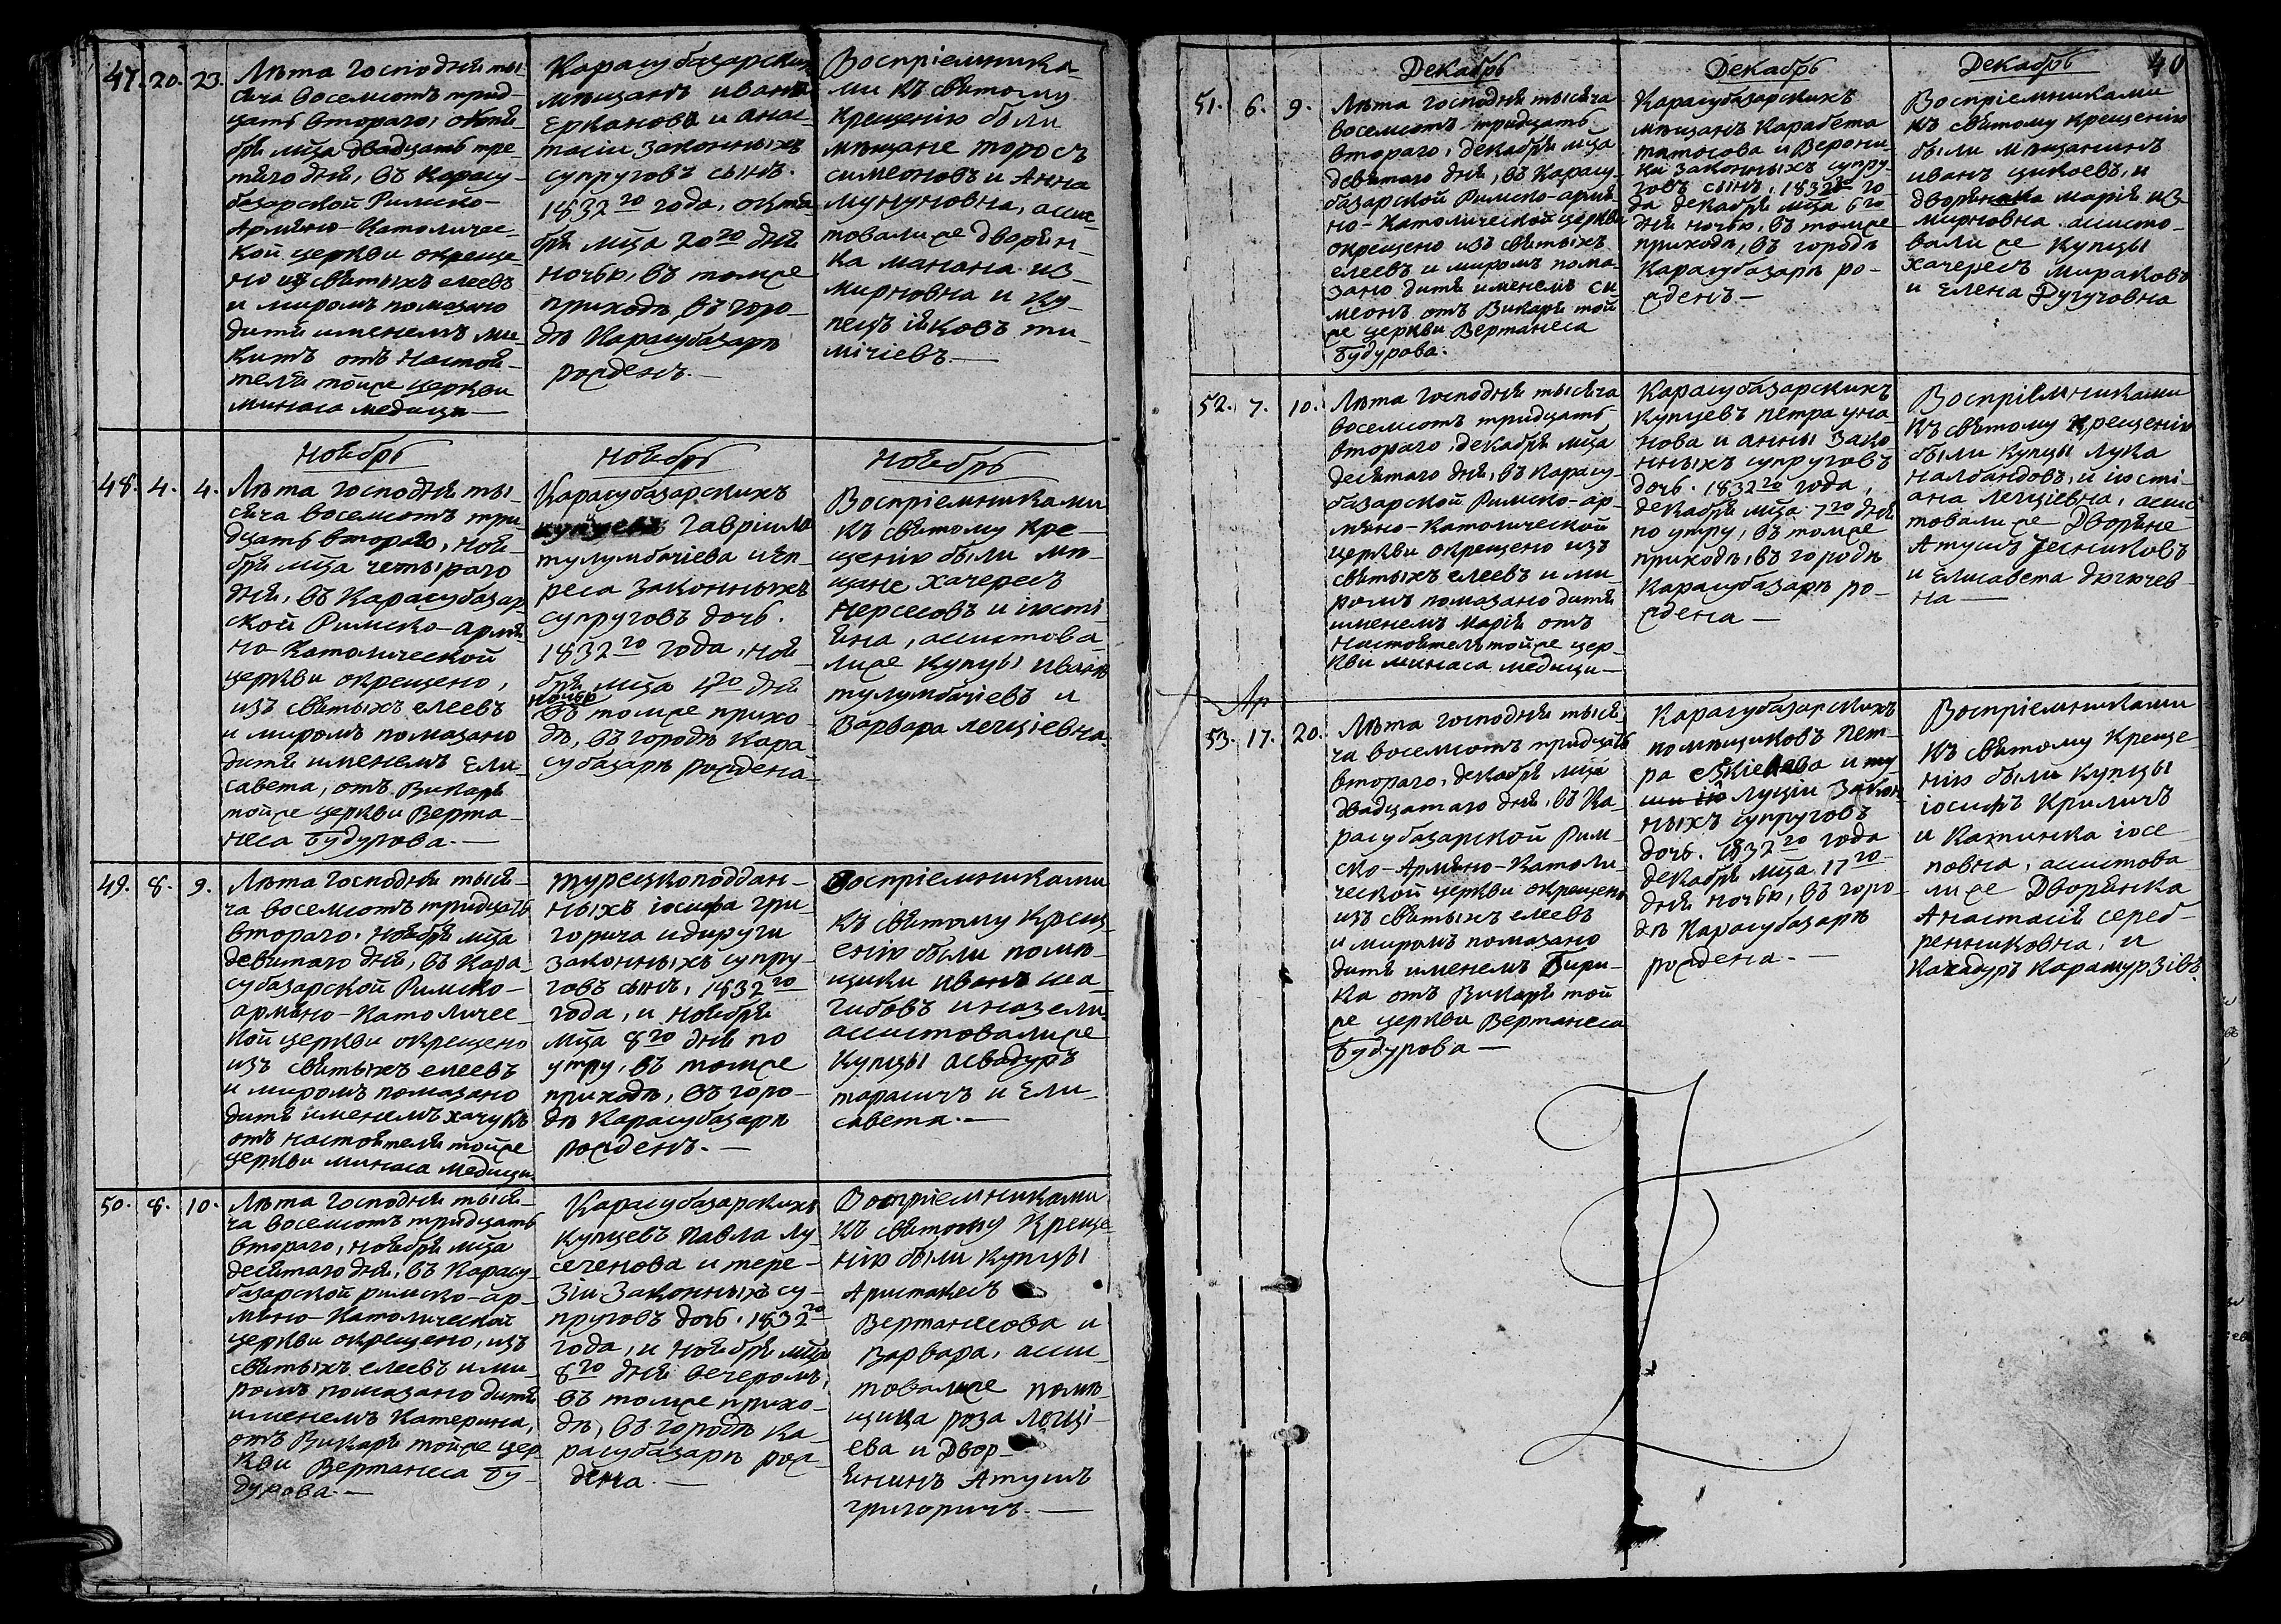 47. 20. 23.
Лѣта Господня ты-
сяча восемьсотъ трид-
цать втораго, октя-
бря мѣца двадцать тре-
тяго дня, въ Карасу-
базарской Римско-
Армяно-Католичес-
кой церкви окреще-
но изъ святыхъ елеевъ
и миромъ помазано
дитя именемъ ми-
китъ отъ настоя-
теля тойже церкви
минаса медици
Карасубазарских
мѣщанъ ивана
Ерканова и анас-
тасіи законныхъ
супруговъ сынъ.
1832го года, октя-
бря мѣца 20го дня
ночью, въ томже
приходѣ въ горо-
дѣ Карасубазарѣ
рожденъ.
Воспріемника-
ми къ святому
крещенію были
мѣщане торосъ
симеоновъ и Анна
мунуновна, ассис
товалисе дворян-
ка манана из-
мировна и ку-
пецъ іяковъ ти-
мічіевъ.
Ноябрь
48. 4. 4.
Лѣта господня ты-
сяча восемсотъ три-
дцать втораго, ноя-
бря мѣца четыраго
дня, въ Карасубазар
ской Римско-армя
но-Католической
церкви окрещено,
изъ святыхъ елеевъ
и миромъ помазано
дитя именемъ Ели-
савета, отъ Викаря
тойже церкви Верта-
неса Будурова.
Ноябрь
Карасубазарскихъ
Гавріила
тулумбачіева и еп-
реса законныхъ
супруговъ дочь.
1832го года, ноя-
бря мѣца 4го дня
ночью
въ томже прихо-
дѣ, въ городѣ Кара
субазарѣ рождена
Ноябрь
Воспріемниками
къ святому кре-
щенію были мѣ-
щане хачересъ
Нерсесовъ и іюсті-
яна, ассистова-
лисе купцы иванъ
тулумбачіевъ и
Варвара легціевна.
49. 8. 9.
Лѣта господня тыся-
ча восемсотъ тридцать
втораго, ноября мѣца
девятаго дня, въ Кара-
субазарской Римско-
армяно-Католичес-
кой церкви окрещено
изъ святыхъ елеевъ
и миромъ помазано
дитя именемъ хачукъ
отъ настоятеля тойже
церкви минаса медици
турецкоподдан-
ныхъ іосифа гри-
горича и дируги
законныхъ супру-
говъ сынъ, 1832го
года, и ноября
мѣца 8го дня по
утру, въ томже
приходѣ, въ горо-
дѣ Карасубазарѣ
рожденъ.
Воспріемниками
къ святому крещ-
енію были помѣ-
щики иванъ ша-
гибовъ и назели
ассистовалисе
купцы асвадуръ
тарасичъ и Ели-
савета.
50. 8. 10.
Лѣта господня тыся-
ча восемсотъ тридцать
втораго, ноября мѣца
десятаго дня, въ Карасу-
базарской римско-ар-
мяно-Католической
церкви окрещено, изъ
святыхъ елеевъ и ми-
ромъ помазано дитя
именемъ Катерина,
отъ Викаря тойже цер-
кви Вертанеса Бу-
дурова.
Карасубазарскихъ
купцевъ Павла лу-
сегенова и тере-
зіи законныхъ су-
пруговъ дочь, 1832го
года, и ноября мѣца
8го дня вечеромъ,
въ томже прихо-
дѣ, въ городѣ ка-
расубазарѣ рож-
дена.
Воспріемниками
къ святому креще-
нію были купцы
Аристакесъ
Вертанесова и
Варвара, асси-
товалисе помѣ-
щица роза логці-
ева и двор-
янинъ Атушъ
григоричъ.
40
Декабрь
51. 6. 9.
Лѣта господня тысяча
восемсотъ тридцать
втораго, декабря мѣца
девятаго дня, въ Карасу-
базарской Римско-армя-
но-Католической церкви
окрещено изъ святыхъ
елеевъ и миромъ пома-
зано дитя именемъ си
меонъ отъ Викаря той
же церкви Вертанеса
Будурова.
Декабрь
Карасубазарскихъ
мѣщанъ Карабета
татосова и Верони-
ки законныхъ супру-
говъ сынъ, 1832го го-
да декабря мѣца 6го
дня ночью, въ томже
приходѣ, въ городѣ
Карасубазарѣ ро-
жденъ
Декабрь
Воспріемниками
къ святому крещенію
были мѣщанинъ
иванъ цикоевъ, и
дворянка марія из-
мировна ассисто-
валисе купцы
хачересъ мираковъ
и Елена Дугучовна
52. 7. 10.
Лѣта господня тысяча
восемсотъ тридцать
втораго, декабря мѣца
десятаго дня, въ Карасу-
базарской Римско-ар-
мяно-Католической
церкви окрещено изъ
святыхъ елеевъ и ми-
ромъ помазано дитя
именемъ Марія отъ
настоятель тойже цер-
кви минаса медици
Карасубазарскихъ
купцевъ петра уна-
нова и анны зако
нныхъ супруговъ
дочь. 1832го года,
декабря мѣца 7го дня
по утру, въ томже
приходѣ, въ городѣ
Карасубазарѣ ро-
ждена
Воспріемниками
къ святому крещенію
были купцы лука
налбандовъ, и іюсті-
ана легціевна, ассис
товалисе Дворяне
Атушъ
и Елисавета дючюев-
на
Ар
53. 17. 20.
Лѣта господня тыся
ча восемсотъ тридцать
втораго, декабря мѣца
двадцатаго дня, въ Ка
расубазарской Рим
ско-Армяно-Католи-
ческой церкви окрещено
изъ святыхъ елеевъ
и миромъ помазано
дитя именемъ Бири-
ка отъ Викаря той
же церкви Вертанеса
Будурова
Карасубазарскихъ
помѣщиковъ Пет-
ра
луціи закон-
ныхъ супруговъ
дочь. 1832го года
декабря мѣца 17го
дня ночью, въ горо-
дѣ Карасубазарѣ
рождена.
Воспріемниками
къ святому Креще-
нію были купцы
іосифъ Криличъ
и Катинка іосе-
повна, ассистова
лисе Дворянка
Анастасія сереб-
ренниковна, и
Качадуръ Карамурзівъ.